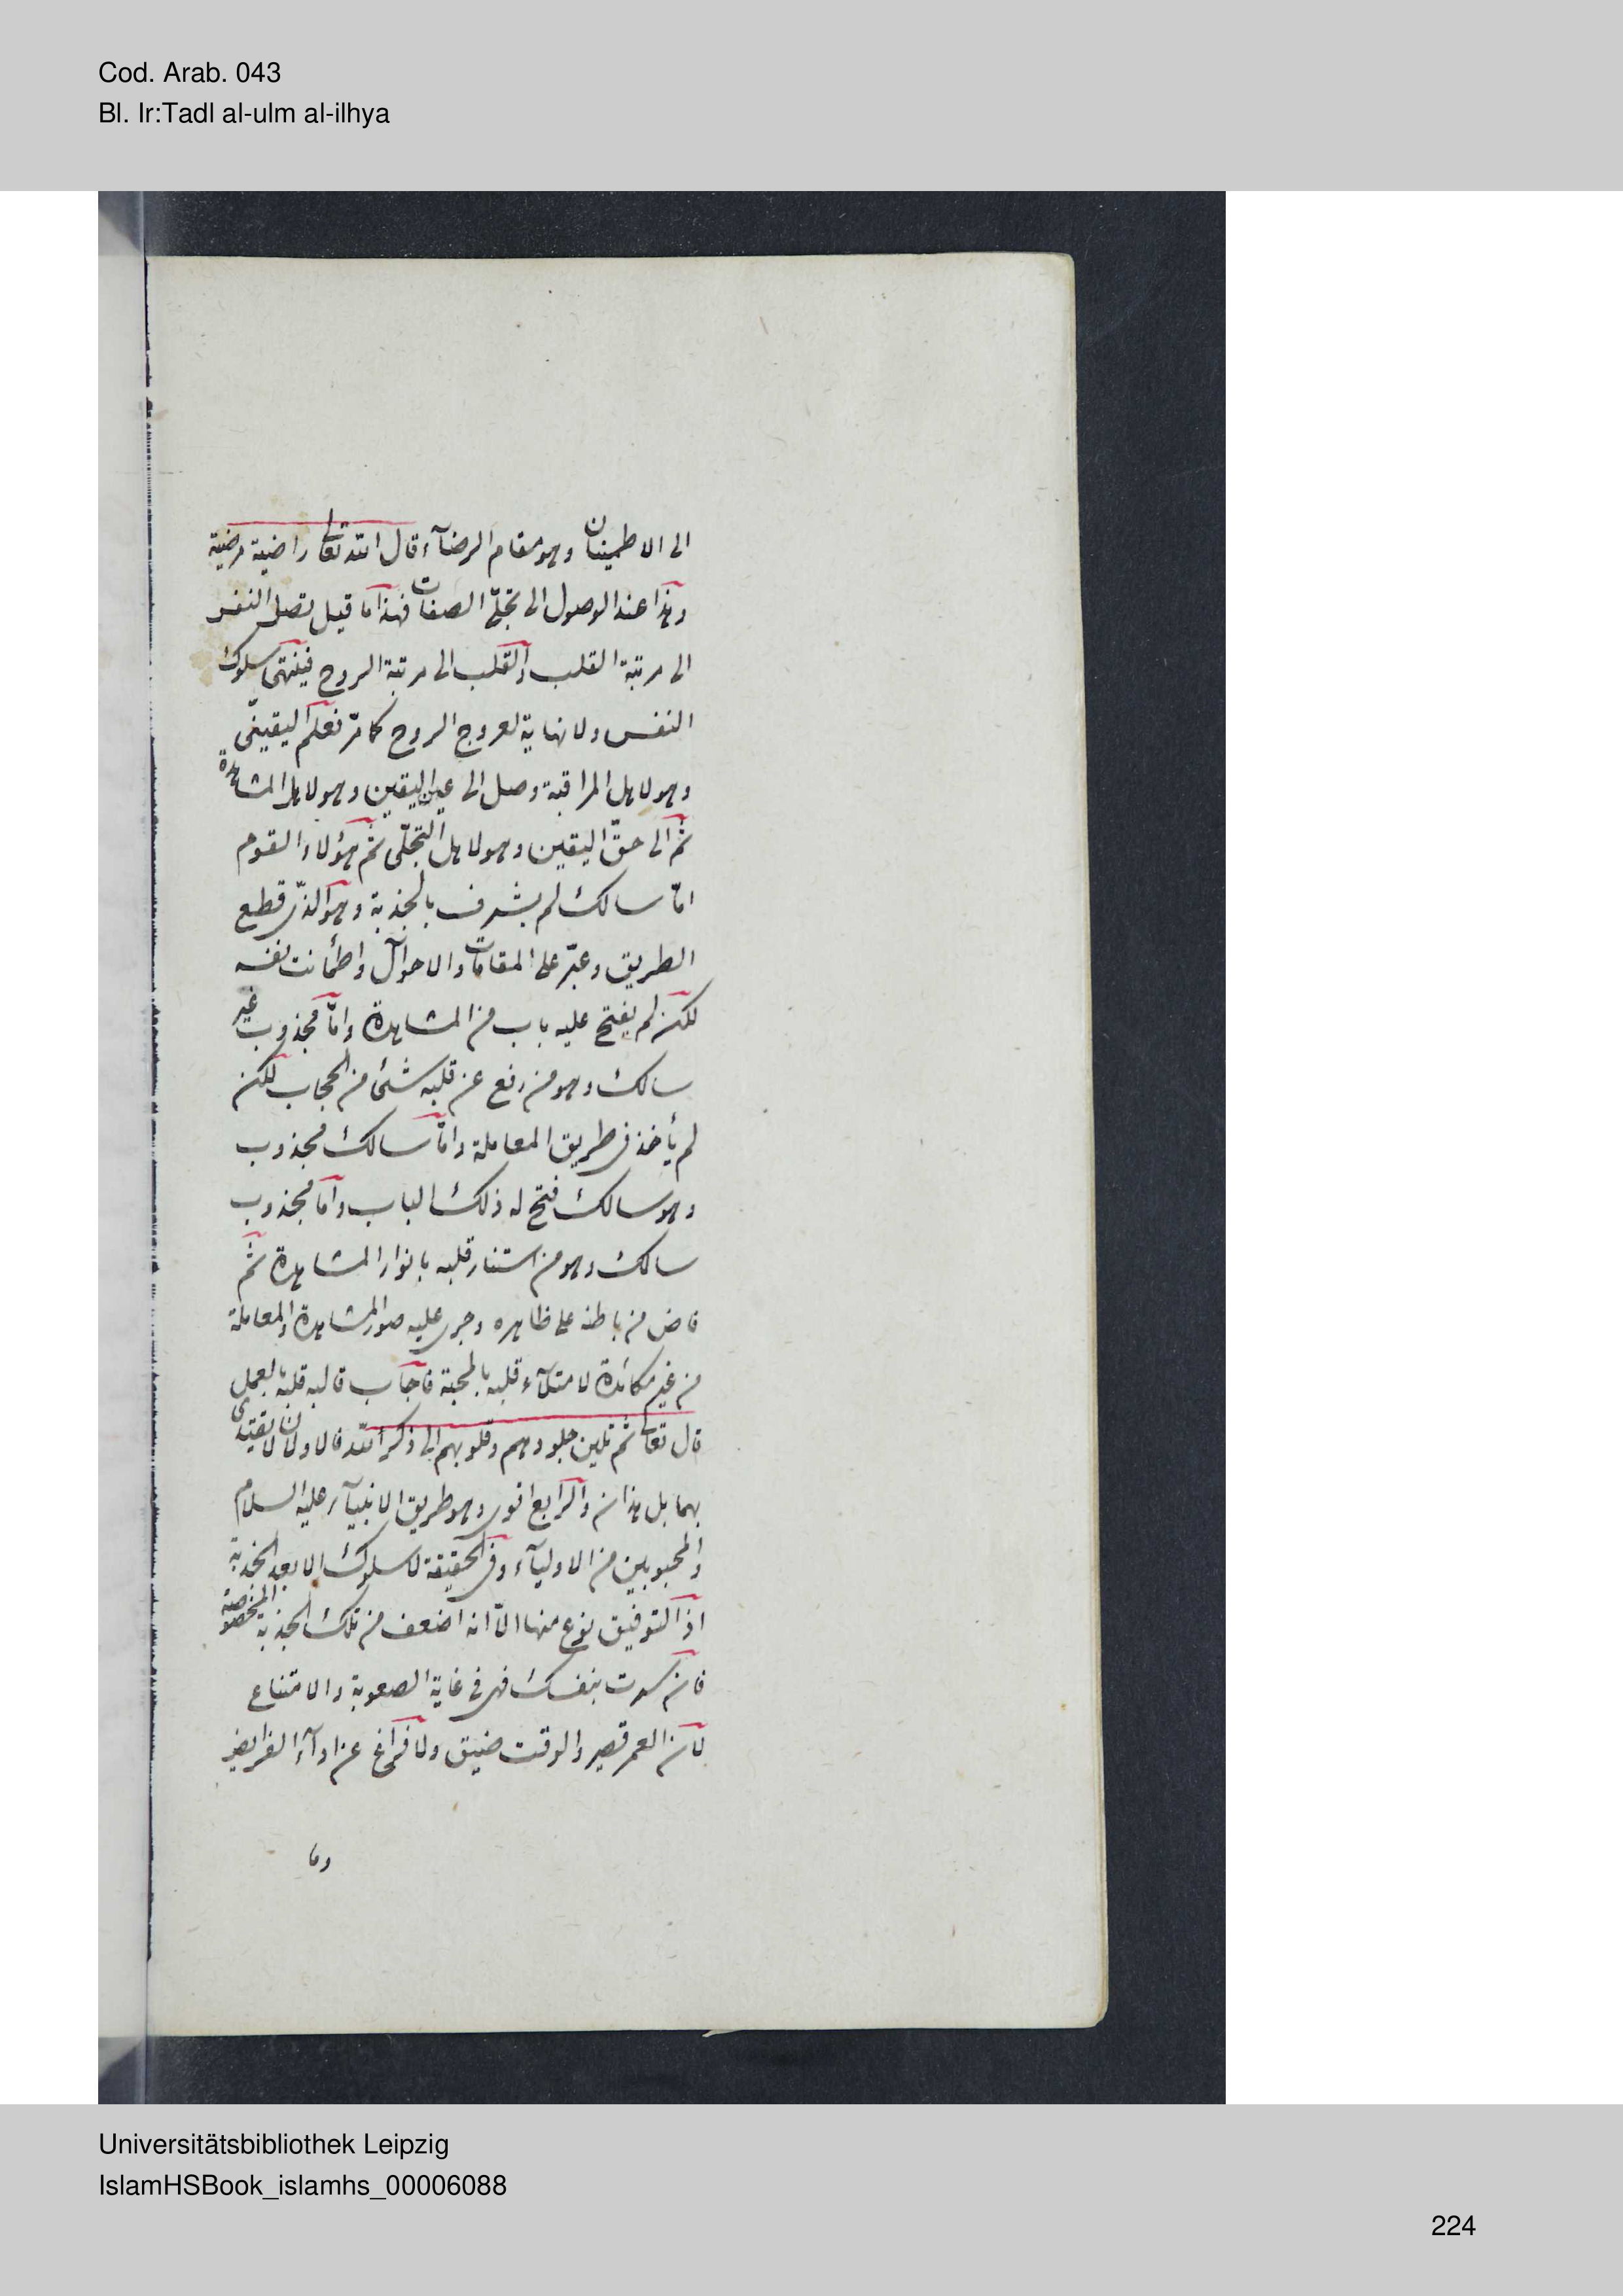 Cod. Arab. 043
Bl. Ir:Tadl al-ulm al-ilhya
الى الاطمينان وهو مقام الرضآء قال الله تعالى راضية مرضية
وهذا عند الوصول الى تجلّى الصفات فهذا ما قيل تصل النفس
الى مرتبة القلب والقلب الى مرتبة الروح فينتهى سلوك
النفس ولا نهاية لعروج الروح كما مرّ فعلم اليقينى
وهو لاهل المراقبة وصل الى عين اليقين وهو لاهل المشاهدة
ثم الى حقّ اليقين وهو لاهل التجلّى ثم هؤلاء القوم
امّا سالك لم يشرف بالجذبة وهو الذى قطع
الطريق وعبّر على المقامات والاحوال واطمأنت نفسه
لكن لم يفتح عليه باب من المشاهدة وامّا مجذوب غير
سالك وهو من رفع عن قلبه شئ من الحجاب لكن
لم يأخذ فى طريق المعاملة وامّا سالك مجذوب
وهو سالك فتح له ذلك الباب وامّا مجذوب
سالك وهو من استنار قلبه بانوار المشاهدة ثم
فاض من باطنه على ظاهره وجرى عليه صور المشاهدة والمعاملة
من غير مكائدة لامتلآء قلبه بالمحبة فاجاب قالبه قلبه بالعمل
قال تعالى ثم تلين جلودهم وقلوبهم الى ذكر الله فالاولان لا يقتدى
بهما بل هذان والرابع اقوى وهو طريق الانبيآء عليه السلام
والمحبوبين من الاوليآء وفى الحقيقة لا سلوك الا بعد الجذبة
اذ التوفيق نوع منها الّا انه اضعف من تلك الجذبة المخصوصة
فان سرت بنفسك فهى فى غاية الصعوبة والامتناع
لان العمر قصير والوقت ضيق ولا فراغ عن ادآء الفرايض
وما
Universitätsbibliothek Leipzig
IslamHSBook_islamhs_00006088
224